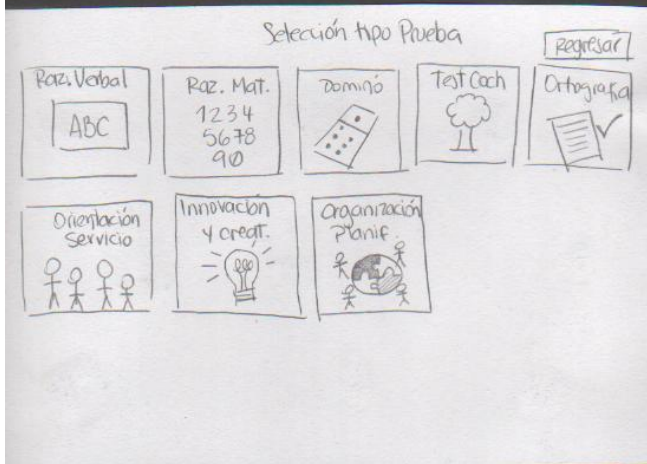 Selección tipo Prueba
Regresar
Raz. Verbal
ABC
Raz. Mat.
1234
5678
90
Dominó
Test Coch
Ortografía
Orientación
Servicio
Innovación
y creat.
Organización
Planif.